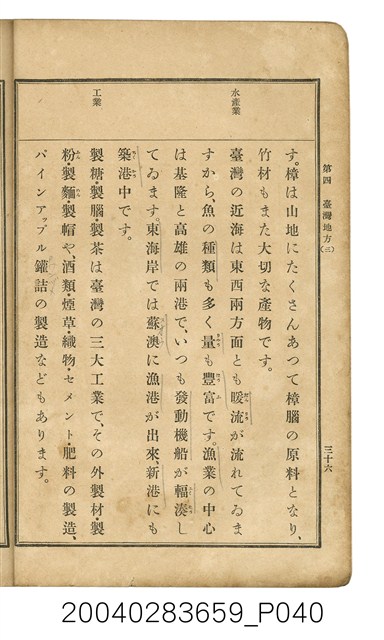 第四 臺灣地方(三)
三十六
す。樟は山地にたくさんあつて樟腦の原料となり、
竹材もまた大切な產物です。
水產業
臺灣の近海は東西兩方面とも暖流が流れてゐま
すから、魚の種類も多く量も豐富です。漁業の中心
は基隆と高雄の兩港で、いつも發動機船が輻湊し
てゐます。東海岸では蘇澳に漁港が出來、新港にも
築港中です。
工業
製糖・製腦・製茶は臺灣の三大工業で、その外製材・製
粉・製麵・製帽や、酒類・煙草・織物・セメント・肥料の製造、
パインアップル罐詰の製造などもあります。
20040283659_P040